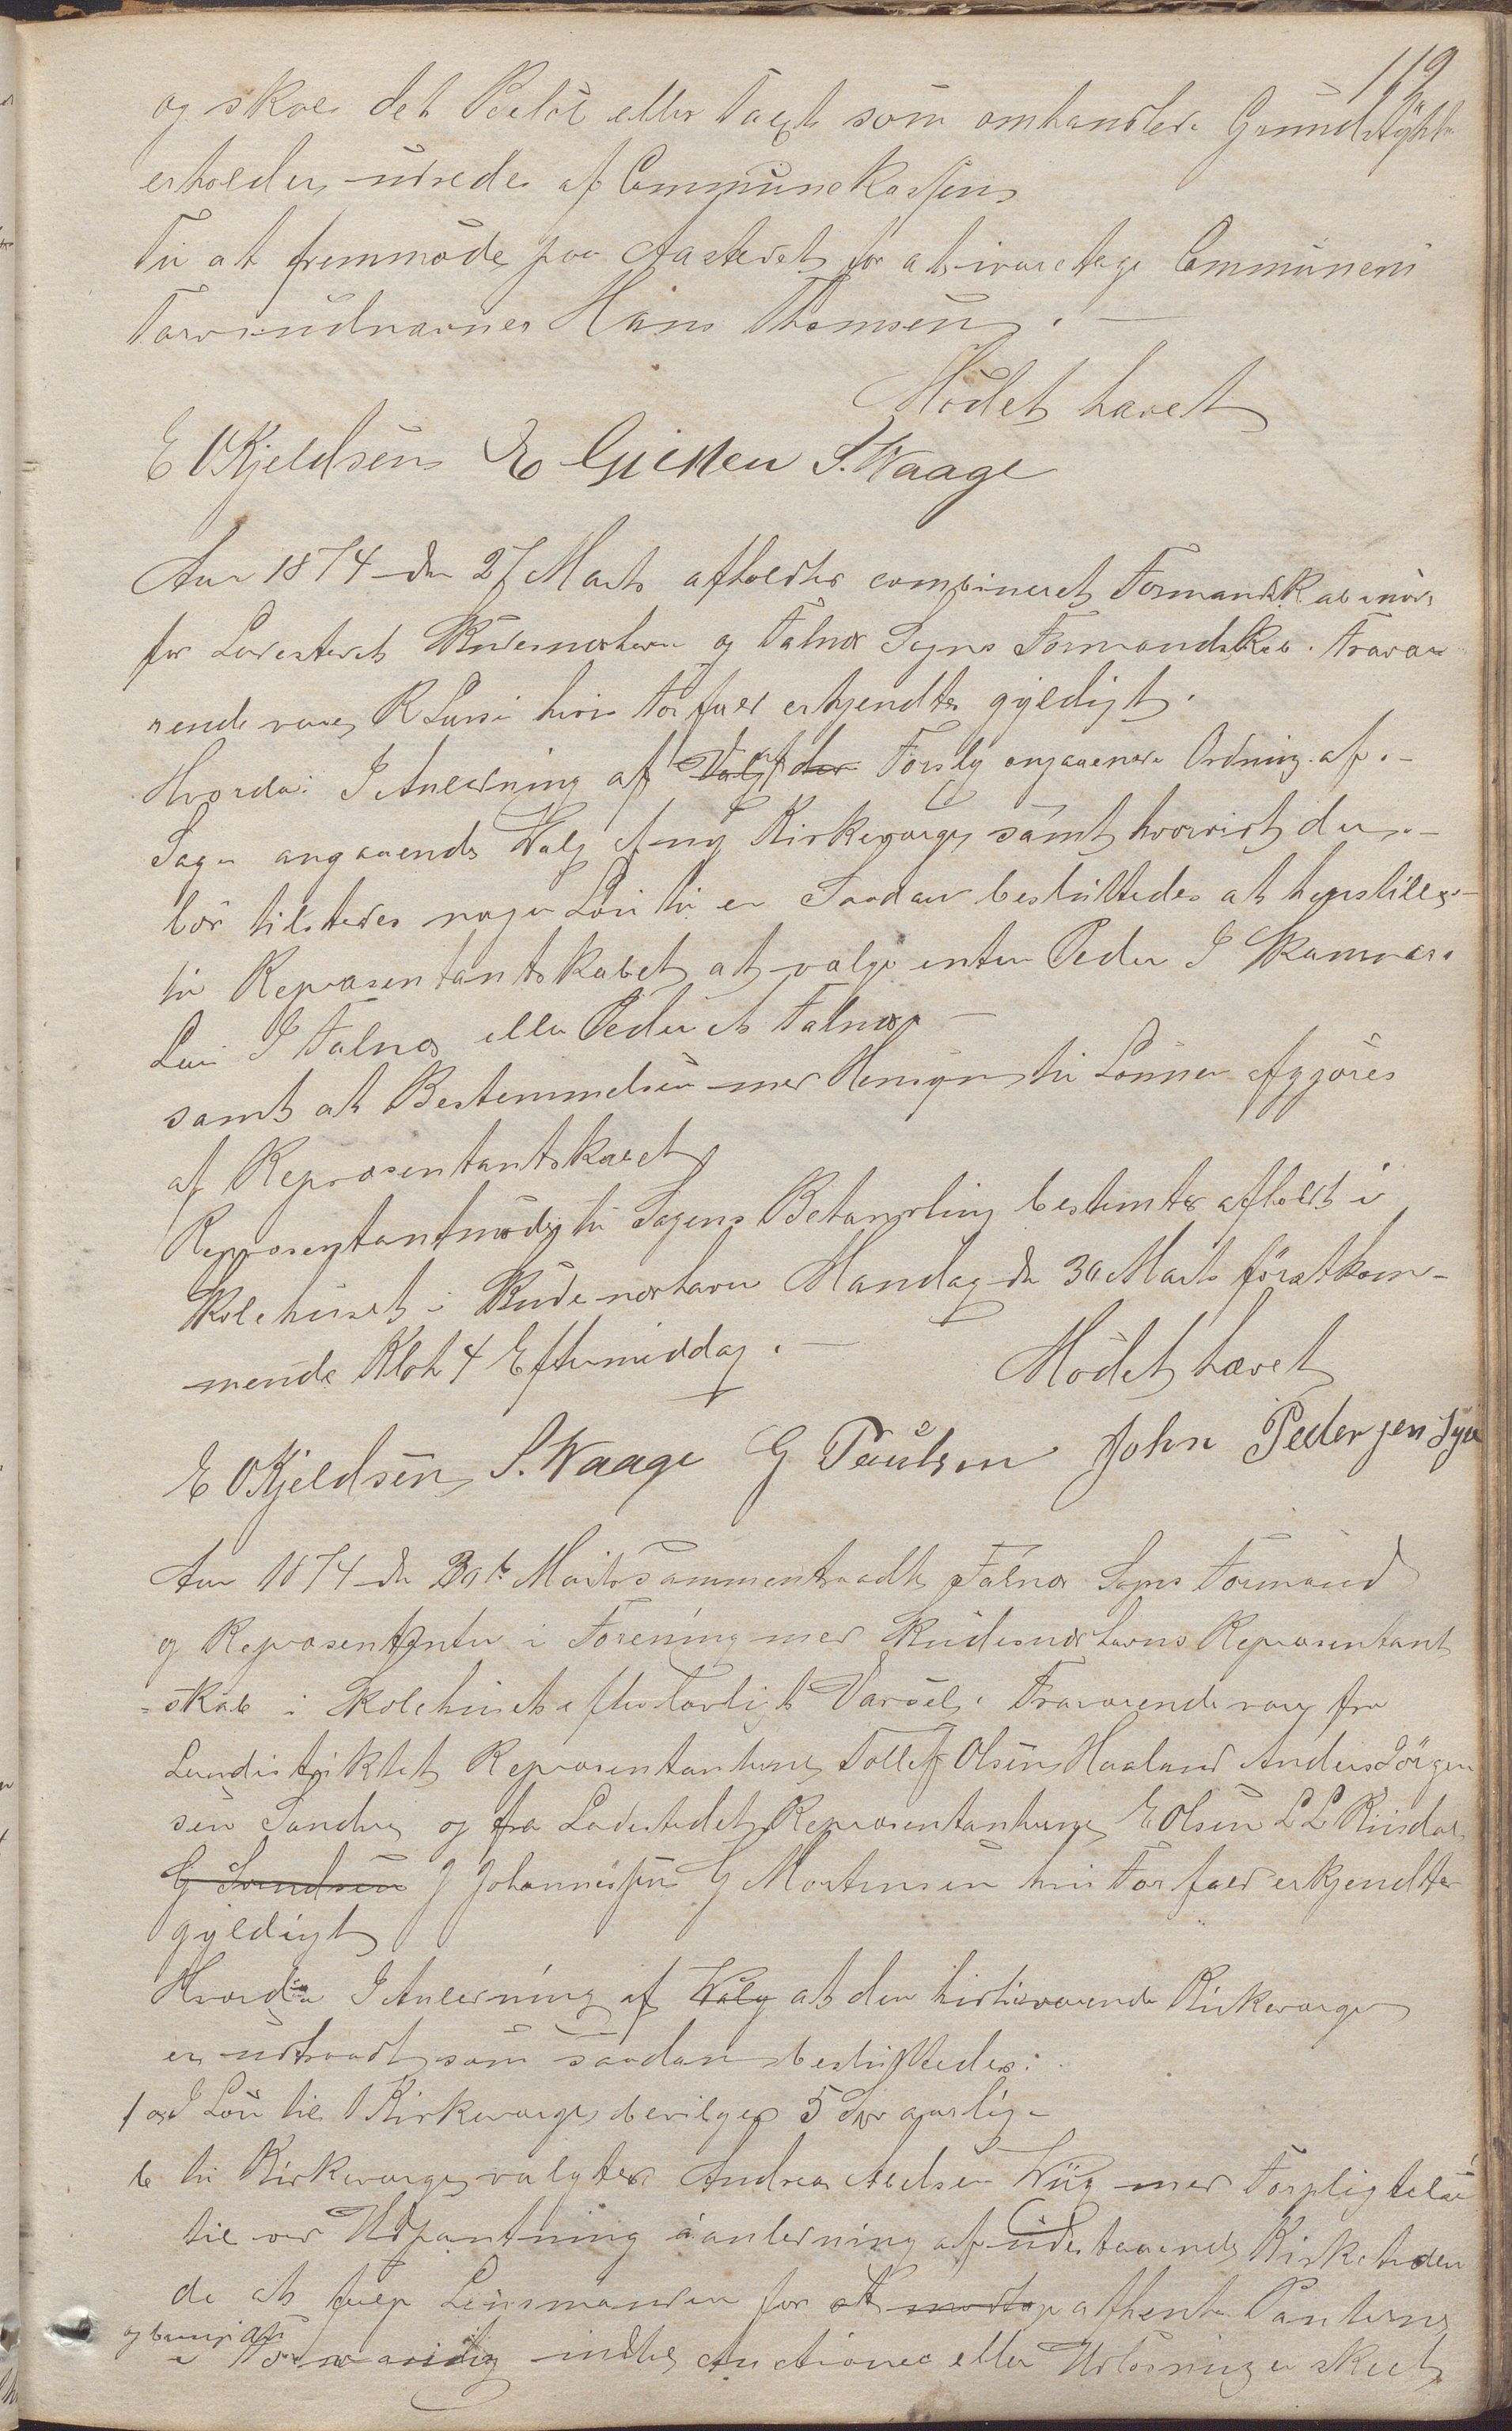 119
og skal det Beløb eller Taxt som omhandlede Grundstykke
erholder udredes af Communekassen
Til at fremmøde paa Aastedet for at ivaretage Communens
Tarv udnævnes Hans Thomsen. —
Mödet hævet
E OKjeldsen E S. Waage
Aar 1874 den 27 Marts afholdtes combineret Formandskabmöde
for Ladestedet Skudesneshavn og Falnæs Sogns Formandskab. Fravæ-
rende var R Larsen hvis Forfald erkjendtes gyldigt.
Hvorda: I Anledning af Valg at der Forslg angaaende Ordning af. —
Sagen angaaende Valg af ny Kirkeværge samt hvorvidt der —
bör tilstedes nogen Lön til en Saadan besluttedes at henstilles —
til Repræsentantskabet at vælge enten Peder I
Lars I Falnæs eller Peder A Falnæs —
samt at Bestemmelsen med Hensyn til Lönnen afgjöres
af Repræsentantskabet
Repræsentantmöde til Sagens Behandling bestemtes afholdt i
Skolehuset i Skudesneshavn Mandag den 30 Marts förstkom-
mende Klok 4 Eftermiddag. —
Mödet hævet
E OKjeldsen S. Waage G Paulsen John Pedersen Syre
Aar 1874 den 30te Marts sammentraadte Falnæs Sogns Formænd
og Repræsentanter i Forening med Skudesneshavns Repræsentant
= skab i Skolehuset efter lovligt Varsel. Fraværende var fra
Landdistriktet Repræsentanterne Tollef Olsen Haaland Anders Jörgen
sen Sandve og fra Ladestedet Repræsentanterne E Olsen L L Riisdal
G Svendsen J Johannesen G Mortensen hvis Forfald erkjendtes
gyldigt
Hvorda I Anledning af Valg at den hidtilværende Kirkeværge
er udtraadt som saadan besluttedes:
1 a I Lön til Kirkeværge bevilges 5 Spd aarlig
b til Kirkeværge valgtes Andreas Abelsen Wiig med Forpligtelse
til ved Udpantning i anledning af udestaaende Kirketiden
de at fölge Lensmanden for at modtage afhente Panterne
og bevare dem
i Forvaring indtil Auctionen eller Udlösning er skeet